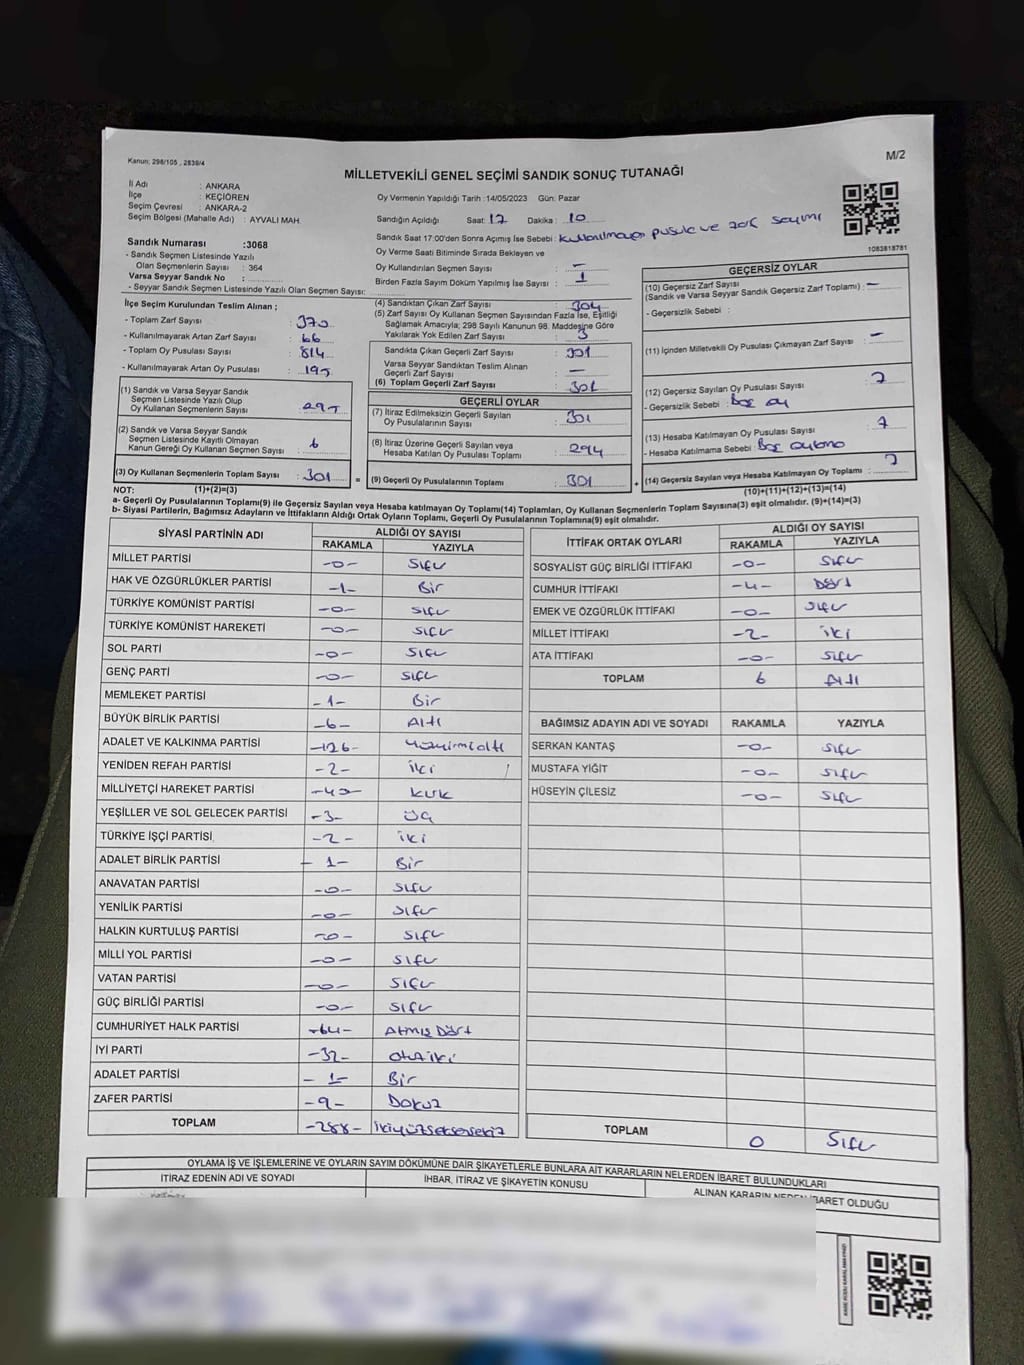 Kanun; 298/105 , 2839/4
M/2
MİLLETVEKİLİ GENEL SEÇİMİ SANDIK SONUÇ TUTANAĞI
İl Adı : ANKARA
İlçe : KEÇİÖREN
Seçim Çevresi : ANKARA-2
Seçim Bölgesi (Mahalle Adı) : AYVALI MAH.
Oy Vermenin Yapıldığı Tarih :14/05/2023 Gün: Pazar
Sandığın Açıldığı Saat: 17 Dakika : 10
Sandık Saat 17:00'den Sonra Açımış İse Sebebi : Kullanılmayan pusula ve zarf sayımı
1083818781
Sandık Numarası :3068
- Sandık Seçmen Listesinde Yazılı
Olan Seçmenlerin Sayısı : 364
Varsa Seyyar Sandık No :
- Seyyar Sandık Seçmen Listesinde Yazılı Olan Seçmen Sayısı:
Oy Verme Saati Bitiminde Sırada Bekleyen ve
Oy Kullandırılan Seçmen Sayısı : —
Birden Fazla Sayım Döküm Yapılmış İse Sayısı : 1
İlçe Seçim Kurulundan Teslim Alınan ;
- Toplam Zarf Sayısı : 370
- Kullanılmayarak Artan Zarf Sayısı : 66
- Toplam Oy Pusulası Sayısı : 814
- Kullanılmayarak Artan Oy Pusulası : 195
(1) Sandık ve Varsa Seyyar Sandık
Seçmen Listesinde Yazılı Olup
Oy Kullanan Seçmenlerin Sayısı : 295
(2) Sandık ve Varsa Seyyar Sandık
Seçmen Listesinde Kayıtlı Olmayan
Kanun Gereği Oy Kullanan Seçmenlerin Sayısı : 6
(3) Oy Kullanan Seçmenlerin Toplam Sayısı : 301
(4) Sandıktan Çıkan Zarf Sayısı : 304
(5) Zarf Sayısı Oy Kullanan Seçmen Sayısından Fazla İse, Eşitliği
Sağlamak Amacıyla; 298 Sayılı Kanunun 98. Maddesine Göre
Yakılarak Yok Edilen Zarf Sayısı : 3
Sandıkta Çıkan Geçerli Zarf Sayısı : 301
Varsa Seyyar Sandıktan Teslim Alınan
Geçerli Zarf Sayısı : —
(6) Toplam Geçerli Zarf Sayısı : 301
GEÇERLİ OYLAR
(7) İtiraz Edilmeksizin Geçerli Sayılan
Oy Pusulalarının Sayısı : 301
(8) İtiraz Üzerine Geçerli Sayılan veya
Hesaba Katılan Oy Pusulası Toplamı : 294
= (9) Geçerli Oy Pusulalarının Toplamı : 301 +
GEÇERSİZ OYLAR
(10) Geçersiz Zarf Sayısı
(Sandık ve Varsa Seyyar Sandık Geçersiz Zarf Toplamı) : —
- Geçersizlik Sebebi :
(11) İçinden Milletvekili Oy Pusulası Çıkmayan Zarf Sayısı : —
(12) Geçersiz Sayılan Oy Pusulası Sayısı : 7
- Geçersizlik Sebebi : Boş oy
(13) Hesaba Katılmayan Oy Pusulası Sayısı : 7
- Hesaba Katılmama Sebebi : Boş oylama
(14) Geçersiz Sayılan veya Hesaba Katılmayan Oy Toplamı : 7
NOT: (1)+(2)=(3) (10)+(11)+(12)+(13)=(14)
a- Geçerli Oy Pusulalarının Toplamı(9) ile Geçersiz Sayılan veya Hesaba Katılmayan Oy Toplamı(14) Toplamları, Oy Kullanan Seçmenlerin Toplam Sayısına(3) eşit olmalıdır. (9)+(14)=(3)
b- Siyasi Partilerin, Bağımsız Adayların ve İttifakların Aldığı Ortak Oyların Toplamı, Geçerli Oy Pusulalarının Toplamına(9) eşit olmalıdır.
SİYASİ PARTİNİN ADI ALDIĞI OY SAYISI
RAKAMLA YAZIYLA
MİLLET PARTİSİ -0- Sıfır
HAK VE ÖZGÜRLÜKLER PARTİSİ -1- Bir
TÜRKİYE KOMÜNİST PARTİSİ -0- Sıfır
TÜRKİYE KOMÜNİST HAREKETİ -0- Sıfır
SOL PARTİ -0- Sıfır
GENÇ PARTİ -0- Sıfır
MEMLEKET PARTİSİ -1- Bir
BÜYÜK BİRLİK PARTİSİ -6- Altı
ADALET VE KALKINMA PARTİSİ -126- Yüzyirmialtı
YENİDEN REFAH PARTİSİ -2- İki
MİLLİYETÇİ HAREKET PARTİSİ -40- Kırk
YEŞİLLER VE SOL GELECEK PARTİSİ -3- Üç
TÜRKİYE İŞÇİ PARTİSİ -2- İki
ADALET BİRLİK PARTİSİ -1- Bir
ANAVATAN PARTİSİ -0- Sıfır
YENİLİK PARTİSİ -0- Sıfır
HALKIN KURTULUŞ PARTİSİ -0- Sıfır
MİLLİ YOL PARTİSİ -0- Sıfır
VATAN PARTİSİ -0- Sıfır
GÜÇ BİRLİĞİ PARTİSİ -0- Sıfır
CUMHURİYET HALK PARTİSİ -64- Atmış Dört
İYİ PARTİ -32- Otuziki
ADALET PARTİSİ -1- Bir
ZAFER PARTİSİ -9- Dokuz
TOPLAM -288- İkiyüzseksensekiz
İTTİFAK ORTAK OYLARI ALDIĞI OY SAYISI
RAKAMLA YAZIYLA
SOSYALİST GÜÇ BİRLİĞİ İTTİFAKI -0- Sıfır
CUMHUR İTTİFAKI -4- Dört
EMEK VE ÖZGÜRLÜK İTTİFAKI -0- Sıfır
MİLLET İTTİFAKI -2- İki
ATA İTTİFAKI -0- Sıfır
TOPLAM 6 Altı
BAĞIMSIZ ADAYIN ADI VE SOYADI RAKAMLA YAZIYLA
SERKAN KANTAŞ -0- Sıfır
MUSTAFA YİĞİT -0- Sıfır
HÜSEYİN ÇİLESİZ -0- Sıfır
TOPLAM 0 Sıfır
OYLAMA İŞ VE İŞLEMLERİNE VE OYLARIN SAYIM DÖKÜMÜNE DAİR ŞİKAYETLERLE BUNLARA AİT KARARLARIN NELERDEN İBARET BULUNDUKLARI
İTİRAZ EDENİN ADI VE SOYADI İHBAR, İTİRAZ VE ŞİKAYETİN KONUSU ALINAN KARARIN NEDEN İBARET OLDUĞU